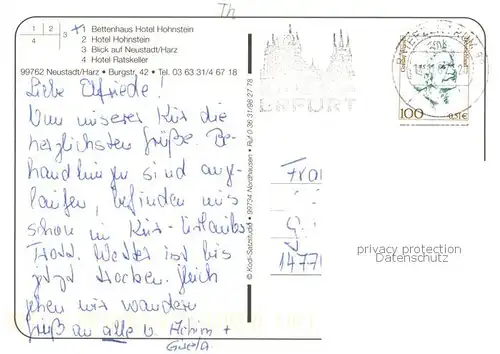 Th
1 2
4 3
1 Bettenhaus Hotel Hohnstein
2 Hotel Hohnstein
3 Blick auf Neustadt/Harz
4 Hotel Ratskeller
99762 Neustadt/Harz • Burgstr. 42 • Tel. 03 63 31/4 67 18
Liebe Elfriede!
Von unserer Kur die
herzlichsten Grüße. Be-
handlungen sind ange-
laufen, befinden uns
schon im Kur-Urlaubs-
Trott. Wetter ist bis
jetzt trocken. Gleich
gehen wir wandern
Gruß an alle v. Achim +
Gisela.
© Kodi-Salzstudio • 99734 Nordhausen • Ruf 0 36 31/98 27 78
ERFURT
BRIEFZENTRUM
100
0,51€
Frau
14771
privacy protection
Datenschutz